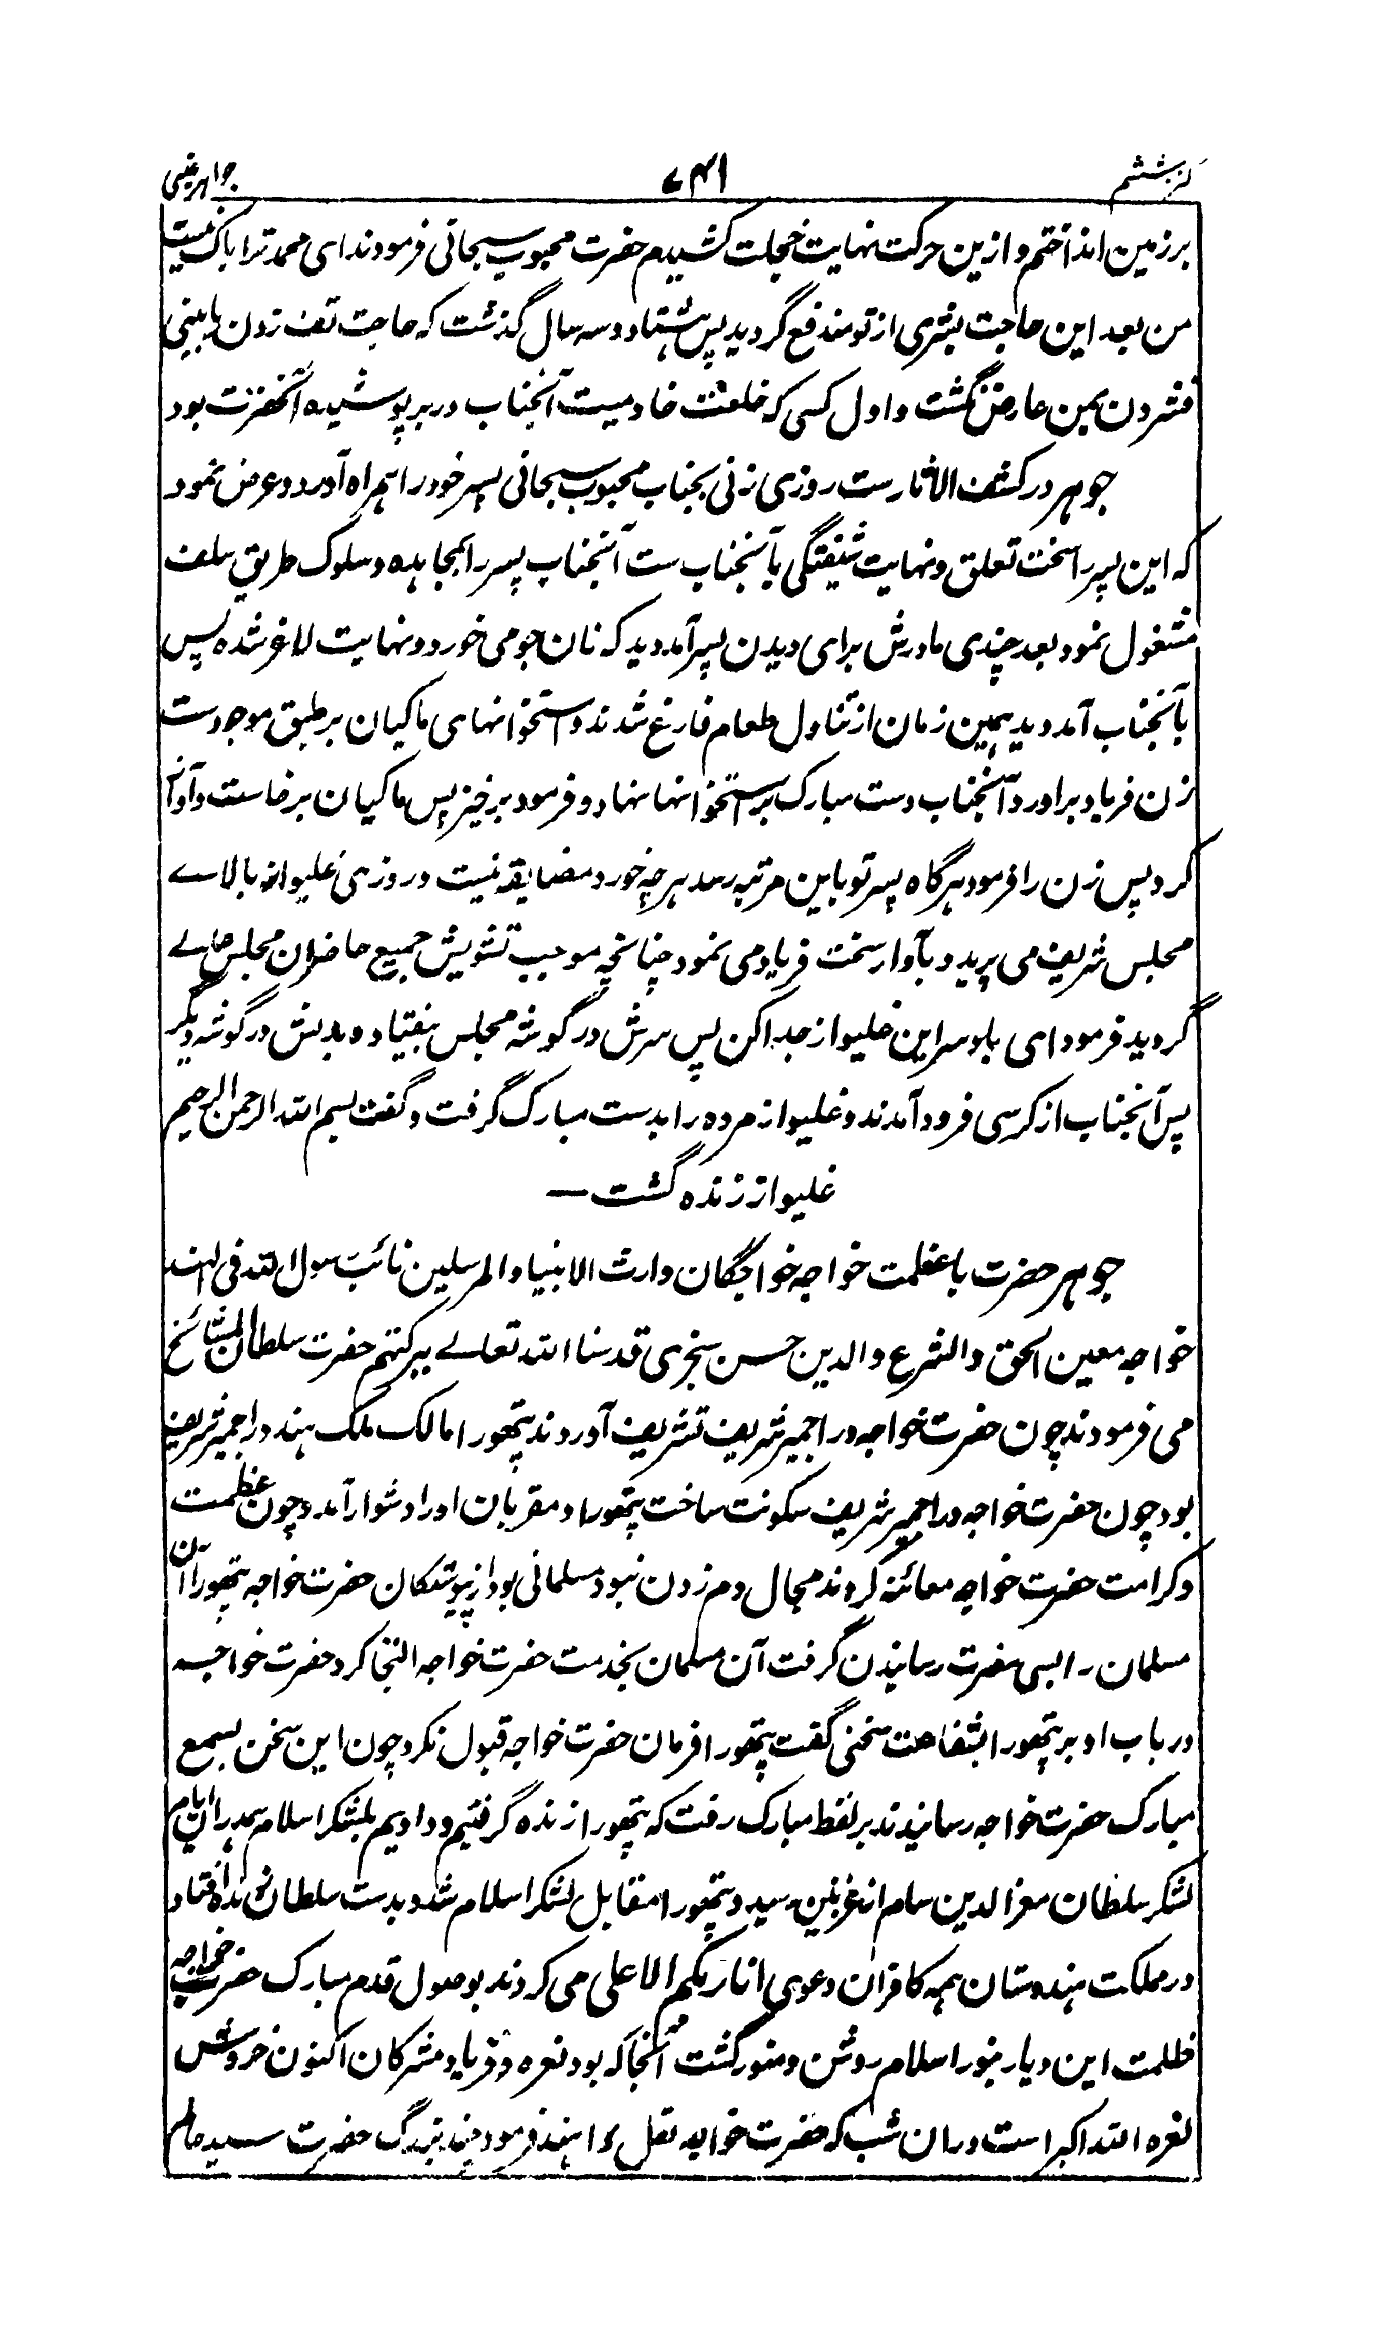 کنز ششم ۷۴۱ جواهر غیبی
بر زمین انداختم و ازین حرکت نهایت خجلت کشیدم حضرت محبوب سبحانی فرمودند ای محمد ترا باک نیست
من بعد این حاجت بشری از تو مندفع گردید پس هشتاد و سه سال گذشت که حاجت تف زدن یا بینی
فشردن بمن عارض نگشت و اول کسی که خلعت خادمیت آنجناب در بر پوشیده آنحضرت بود
جوهر در کشف الاثارست روزی زنی بجناب محبوب سبحانی پسر خود را همراه آورد و عرض نمود
که این پسر را سخت تعلق و نهایت شیفتگی بآنجناب ست آنجناب پسر را بمجاهده و سلوک طریق سلف
مشغول نمود بعد چندی مادرش برای دیدن پسر آمد دید که نان جو می خورد و نهایت لاغر شده پس
بآنجناب آمد و دید همین زمان از تناول طعام فارغ شدند و استخوانهای ماکیان بر طبق موجودست
زن فریاد براورد آنجناب دست مبارک بر استخوانها نهاد و فرمود برخیز پس ماکیان برخاست و آواز
کرد پس زن را فرمود هرگاه پسر تو باین مرتبه رسد هرچه خورد مضایقه نیست و روزی غلیواز بالاے
مجلس شریف می پرید و بآواز سخت فریاد می نمود چنانچه موجب تشویش جمیع حاضران مجلس عالے
گردید فرمود ای باد سر این غلیواز جدا کن پس سرش در گوشه مجلس بیفتاد و بدنش در گوشه دیگر
پس آنجناب از کرسی فرود آمدند و غلیواز مرده را بدست مبارک گرفت و گفت بسم الله الرحمن الرحیم
غلیواز زنده گشت —
جوهر حضرت با عظمت خواجه خواجگان وارث الانبیاء و المرسلین نائب رسول الله فی الهند
خواجه معین الحق و الشرع و الدین حسن سنجری قدسنا الله تعالے ببرکتهم حضرت سلطان المشائخ
می فرمودند چون حضرت خواجه در اجمیر شریف تشریف آوردند پتهورا مالک ملک هند در اجمیر شریف
بود چون حضرت خواجه در اجمیر شریف سکونت ساخت پتهورا و مقربان او را دشوار آمد و چون عظمت
و کرامت حضرت خواجه معائنه کردند مجال دم زدن نبود مسلمانی بود از پیوستگان حضرت خواجه پتهورا آن
مسلمان را بسی مضرت رسانیدن گرفت آن مسلمان بخدمت حضرت خواجه التجا کرد حضرت خواجه
در باب او بر پتهورا بشفاعت سخنی گفت پتهورا فرمان حضرت خواجه قبول نکرد چون این سخن بسمع
مبارک حضرت خواجه رسانیدند بر لفظ مبارک رفت که پتهورا زنده گرفتیم و دادیم بلشکر اسلام همدران ایام
لشکر سلطان معز الدین سام از غزنین رسید و پتهورا مقابل لشکر اسلام شد و بدست سلطان زنده افتاد
در مملکت هندوستان همه کافران دعوی انا ربکم الاعلی می کردند بوصول قدم مبارک حضرت خواجه
ظلمت این دیار بنور اسلام روشن و منور گشت آنجا که بود نعره و فریاد مشرکان اکنون خروش
نعره الله اکبر است دران شب که حضرت خواجه نقل خواهند فرمود چند بزرگ حضرت سید عالم